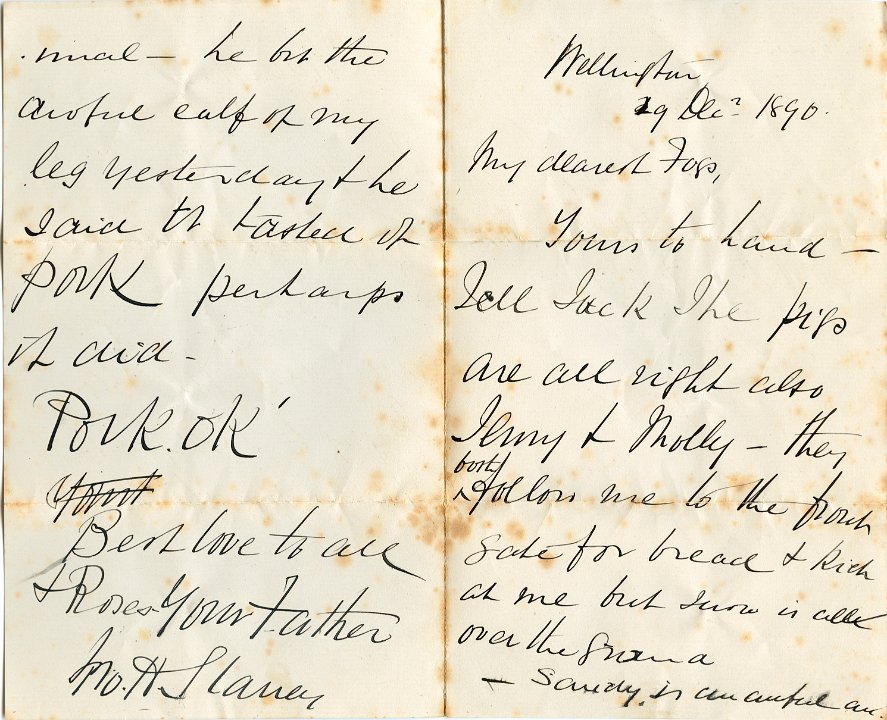 Wellington
29 Decr 1890.
My dearest Fogs,
Yours to hand —
Tell Jack The pigs
are all right also
Jenny & Molly — they
both follow me to the front
gate for bread & kick
at me but snow is all
over the ground
— Sandy is an awful an-
-imal — he bit the
awful calf of my
leg yesterday & he
said it tasted of
pork perhaps
it did -
Pork. OK'
Best love to all
& Roses Your Father
Jno. H. Slaney